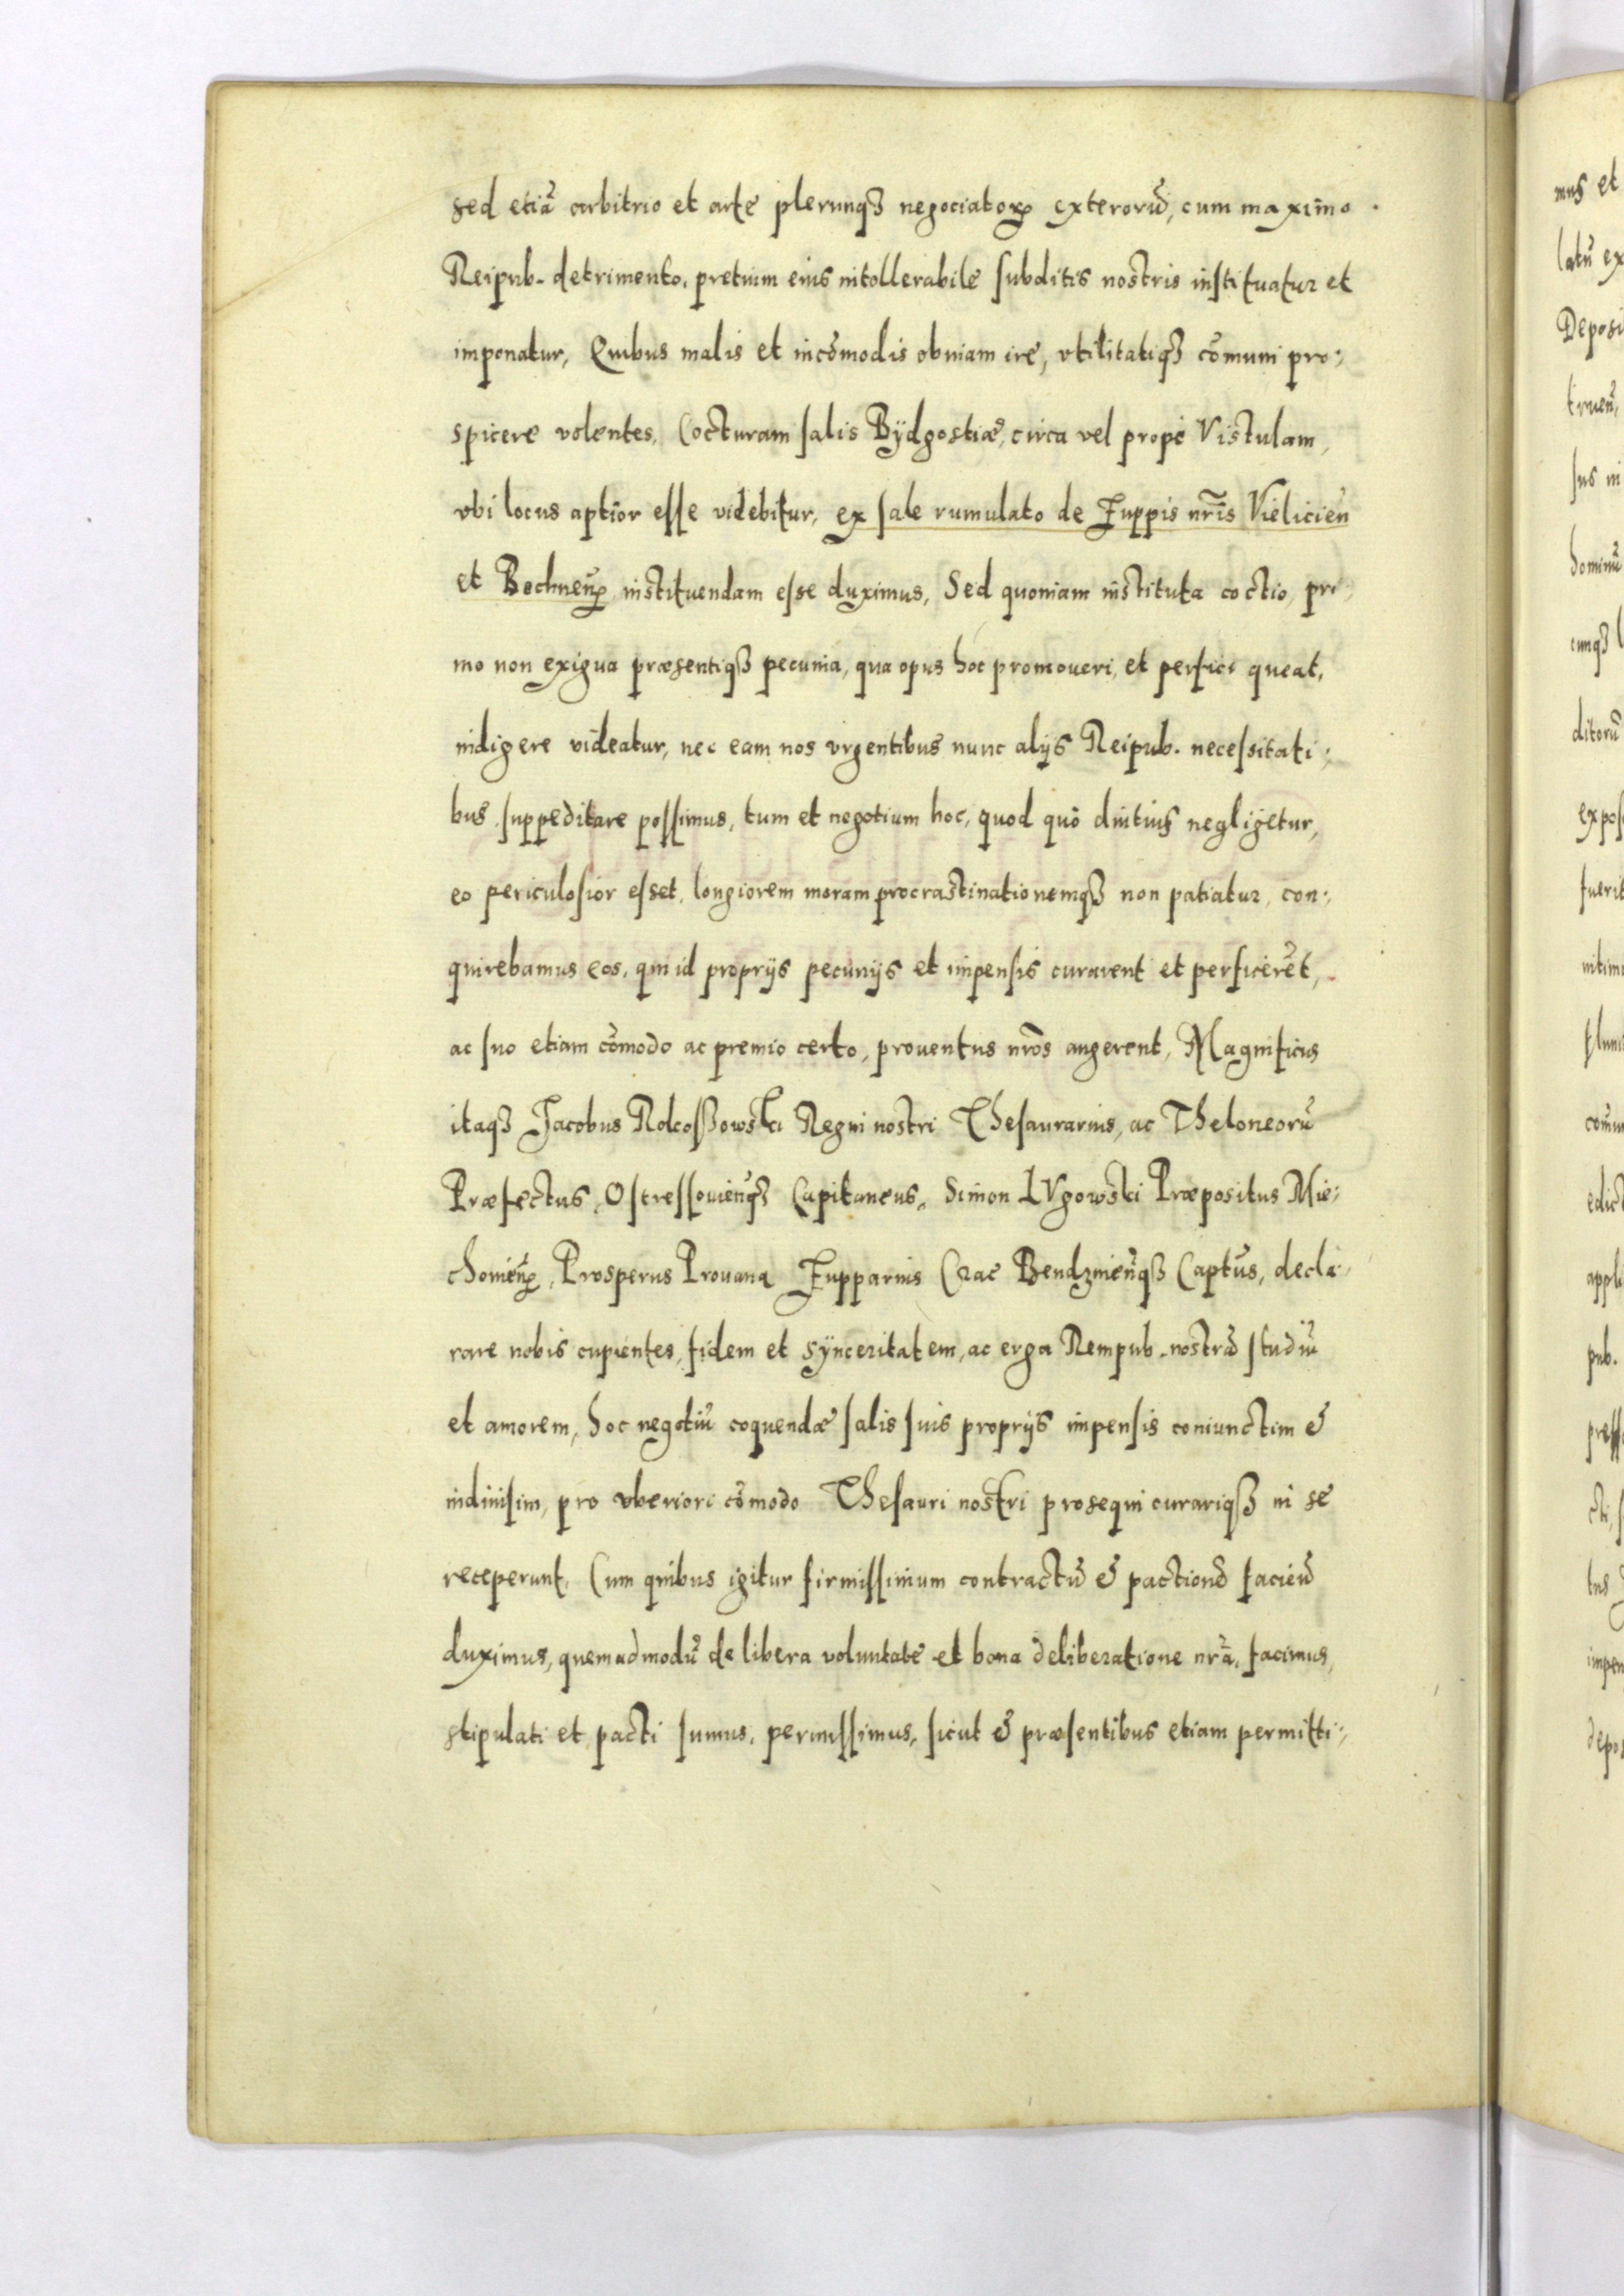 sed etiã arbitrio et arte plerunqȝ negociatoꝝ exterorũ, cum maximo
Reipub. detrimento, pretium eius intollerabile subditis nostris instituatur et
imponatur, Quibus malis et incõmodis obuiam ire, vtilitatiqȝ cõmuni pro:,
spicere volentes, Cocturam salis Bÿdgostiæ, circa vel propè Vistulam,
vbi locus aptior esse videbitur, ex sale rumulato de Zuppis nr̃is Vielicień
et Bochneñ, instituendam esse duximus, Sed quoniam instituta coctio, pri:,
mo non exigua præsentiqȝ pecunia, qua opus hoc promoueri, et perfici queat,
indigere videatur, nec eam nos vrgentibus nunc alijs Reipub. necessitati:,
bus suppeditare possimus, tum et negotium hoc, quod quò diutius negligetur,
eo periculosior esset, longiorem moram procrastinationemqȝ non patiatur, con:,
quirebamus eos, qui id proprijs pecunijs et impensis curarent et perficerẽt,
ac suo etiam cõmodo ac premio certo, prouentus nr̃os augerent, Magnificus
itaqȝ Jacobus Rokossowski Regni nostri Thesaurarius, ac Theloneorũ
Præfectus, Ostressouieñqȝ Capitaneus, Simon LVgowski Præpositus Mie:,
chouieñ, Prosperus Prouana Zupparius Crac Bendzinieñqȝ Captũs, decla:,
rare nobis cupientes, fidem et sÿnceritatem, ac erga Rempub. nostrã studiũ
et amorem, hoc negotiũ coquendæ salis suis proprijs impensis coniunctim &
indiuisim, pro vberiori cõmodo Thesauri nostri prosequi curariqȝ in se
receperunt, Cum quibus igitur firmissimum contractũ & pactionẽ facieñ
duximus, quemadmodũ de libera voluntate et bona deliberatione nr̃a, facimus,
stipulati et pacti sumus, permissimus, sicut & præsentibus etiam permitti:,
mus et
Deposi